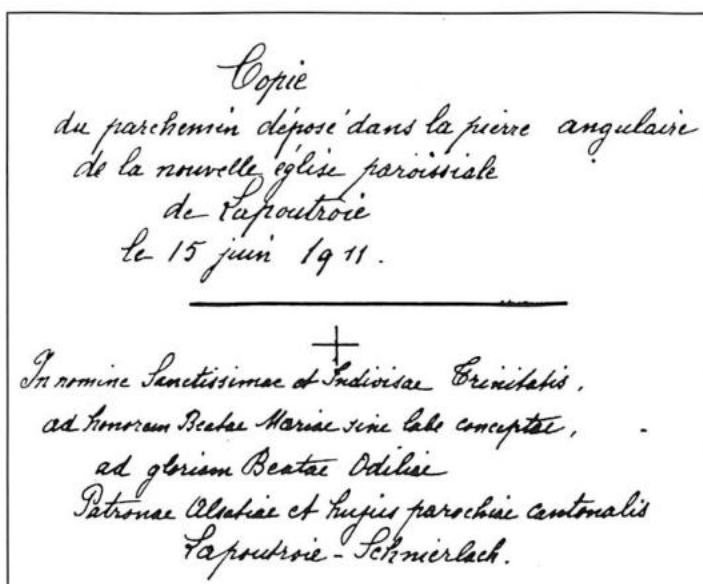 Copie
du parchemin déposé dans la pierre angulaire
de la nouvelle église paroissiale
de Lapoutroie
le 15 juin 1911.
In nomine Sanctissimae et Indivisae Trinitatis,
ad honorem Beatae Mariae sine labe conceptae,
ad gloriam Beatae Odiliae
Patronae Alsatiae et hujus parochiae cantonalis
Lapoutroie - Schnierlach.